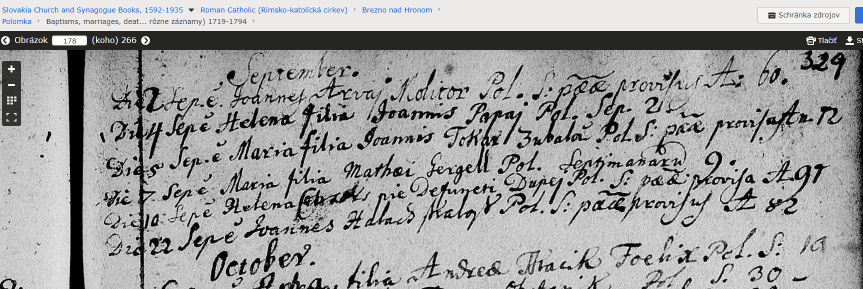 Slovakia Church and Synagogue Books, 1592-1935 ▾ Roman Catholic (Rímsko-katolícká cirkev) › Brezno nad Hronom ›
Polomka › Baptisms, marriages, deat... rôzne záznamy) 1719-1794
Schránka zdrojov
Obrázok 178 (koho) 266
Tlačiť
329
September.
Die 2 Sep.ē. Joannes Arvaj Molitor Pol. S: pææ provisus A: 60.
Die 4 Sepē Helena filia Joannis Papaj Pol. Sep. 2
Die 5 Sep.ē Maria filia Joannis Tokar Pol. S: pææ provisa An. 12
Die 7. Sepē Maria filia Mathæi Gergell Pol. Septimanarū 9.
Die 10 Sepē Helena pie Defuncti Dupej Pol. S: pææ provisa A. 97
Die 22 Sepē Joannes Halach Pol. S: pææ provisus A 82
October.
filia Andreæ Foelix Pol. S:
Pol S. 30